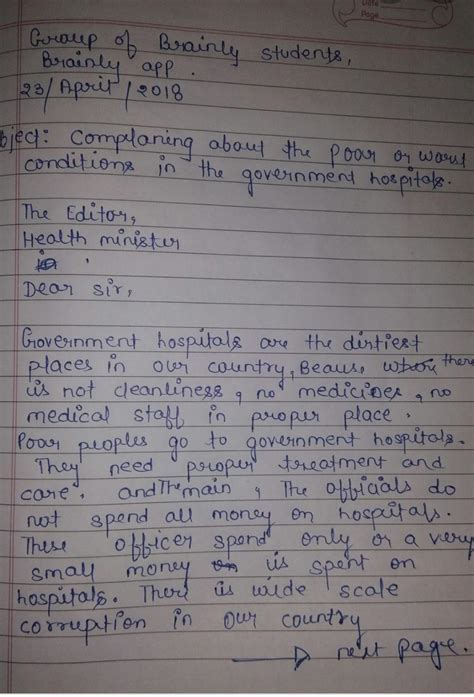 Date
Page
Group of Brainly students,
Brainly app.
23/April/2018
bject: Complaning about the poor or worst
conditions in the government hospitals.
The Editor,
Health minister
Dear sir,
Government hospitals are the dirtiest
places in our country, Beause there
is not cleanliness, no medicines, no
medical staff in proper place.
Poor peoples go to government hospitals.
They need proper treatment and
care. and The main, The officials do
not spend all money on hospitals.
These officer spend only or a very
small money is spent on
hospitals. There is wide scale
corruption in our country
→ next page.